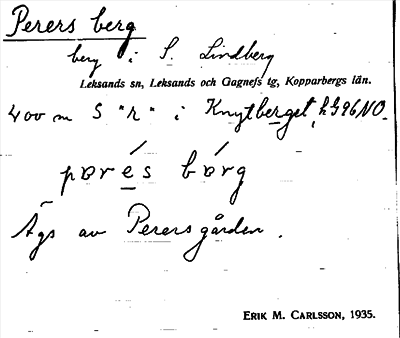 Perers berg
berg i S. Lindberg
Leksands sn, Leksands och Gagnefs tg, Kopparbergs län.
400 m S "r" i Knytberget, h596NO.
pɒrés bɒ́rg
Ägs av Perersgården.
ERIK M. CARLSSON, 1935.